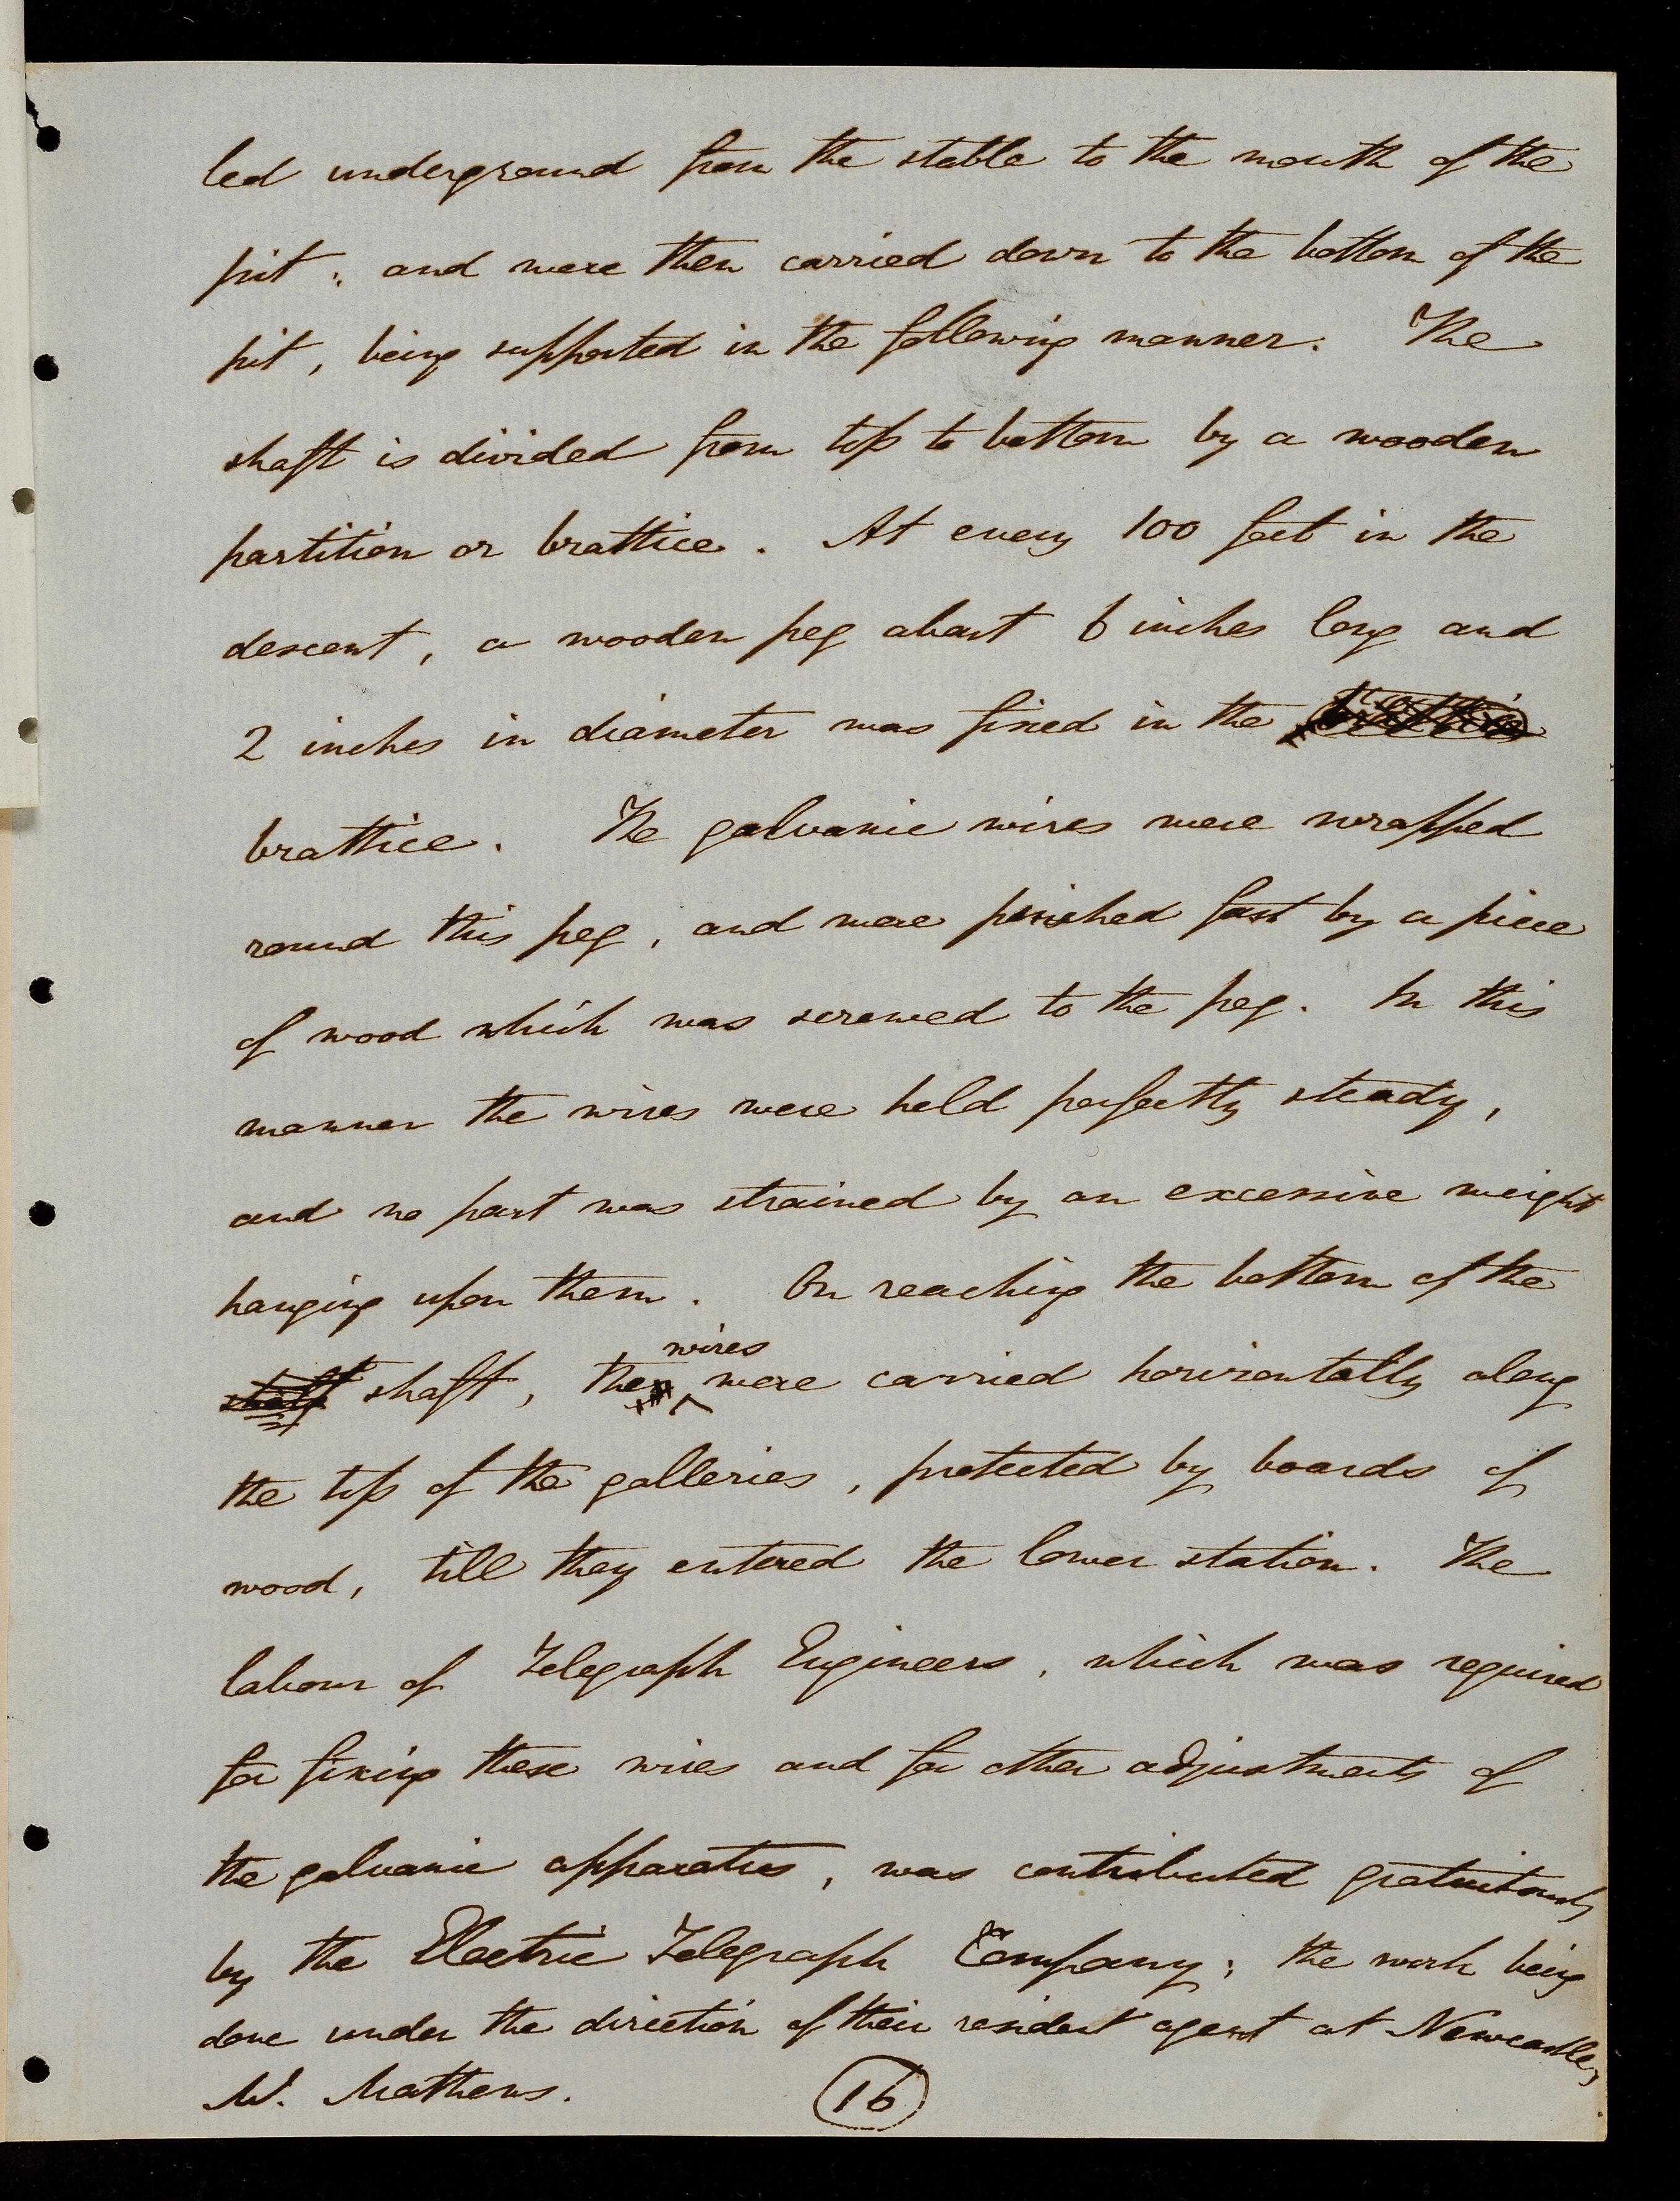 led underground from the stable to the mouth of the
pit ; and were then carried down to the bottom of the
pit , being supported in the following manner. The
shaft is divided from top to bottom by a wooden
partition or brattice . At every 100 feet in the
descent , a wooden peg about 6 inches long and
2 inches in diameter was fixed in the
brattice . The galvanic wires were wrapped
round this peg , and were pinched fast by a piece
of wood which was screwed to the peg . In this
manner the wires were held perfectly steady ,
and no part was strained by an excessive weight
hanging upon them . On reaching the bottom of the
wires
shaft shaft , the were carried horizontally along
the top of the galleries , protected by boards of
wood , till they entered the lower station . The
labour of Telegraph Engineers , which was required
for fixing these wires and for other adjustments of
the galvanic apparatus , was contributed gratuitously
by the Electric Telegraph Company ; the work being
done under the direction of their resident agent at Newcastle,
Mr. Mathews.
16